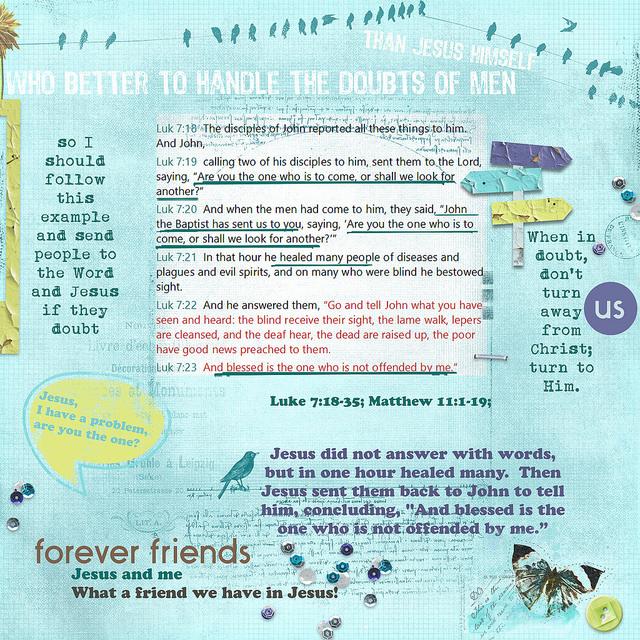 THAN JESUS HIMSELF
WHO BETTER TO HANDLE THE DOUBTS OF MEN
so I
should
follow
this
example
and send
people to
the Word
and Jesus
if they
doubt
Luk 7:18 The disciples of John reported all these things to him.
And John,
Luk 7:19 calling two of his disciples to him, sent them to the Lord,
saying, "Are you the one who is to come, or shall we look for
another?"
Luk 7:20 And when the men had come to him, they said, "John
the Baptist has sent us to you, saying, 'Are you the one who is to
come, or shall we look for another?'"
Luk 7:21 In that hour he healed many people of diseases and
plagues and evil spirits, and on many who were blind he bestowed
sight.
Luk 7:22 And he answered them, "Go and tell John what you have
seen and heard: the blind receive their sight, the lame walk, lepers
are cleansed, and the deaf hear, the dead are raised up, the poor
have good news preached to them.
Luk 7:23 And blessed is the one who is not offended by me."
When in
doubt,
don't
turn
away
from
Christ;
turn to
Him.
us
Luke 7:18-35; Matthew 11:1-19;
Jesus,
I have a problem,
are you the one?
Jesus did not answer with words,
but in one hour healed many. Then
Jesus sent them back to John to tell
him, concluding, "And blessed is the
one who is not offended by me."
forever friends
Jesus and me
What a friend we have in Jesus!